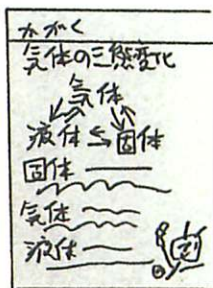 かがく
気体の三態変化
気体
液体⇆固体
固体
気体
液体